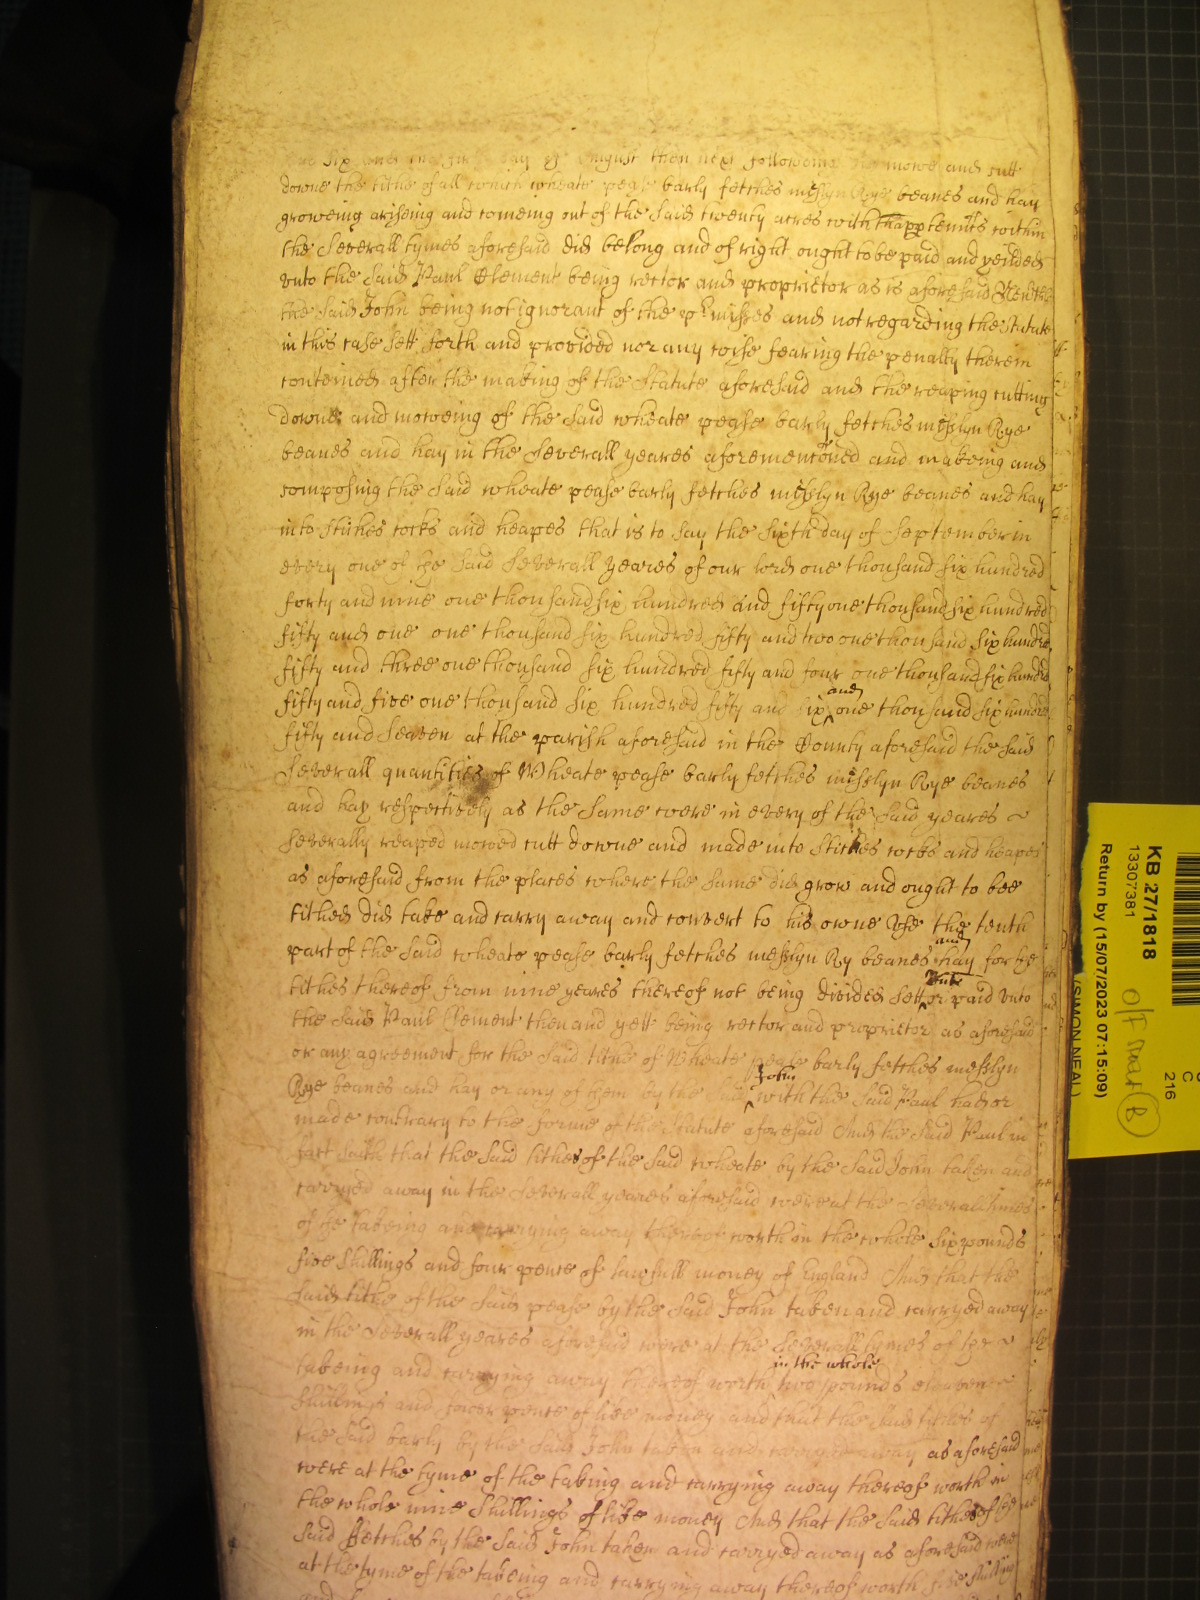 six and day of August then next following mowe and cutt
downe the tithe of all which wheate pease barly fetches messlyn Rye beanes and hay
groweing ariseing and comeing out of the said twenty acres with thapptennts within
the severall tymes aforesaid did belong and of right ought to be paid and yeilded
unto the said Paul Clement being rector and proprietor as is aforesaid
the said John being not ignorant of the pʳmisses and not regarding the statute
in this case sett forth and provided nor any wise feareing the penalty therein
conteined after the making of the Statute aforesaid and the reaping cutting
downe and moweing of the said wheate pease barly fetches messlyn Rye
beanes and hay in the severall yeares aforementoned and makeing and
composing the said wheate pease barly fetches messlyn Rye beanes and hay
into stitches cocks and heapes that is to say the sixth day of September in
every one of the said severall yeares of our lord one thousand six hundred
forty and nine one thousand six hundred and fifty one thousand six hundred
fifty and one one thousand six hundred fifty and two one thousand six hundred
fifty and three one thousand six hundred fifty and four one thousand six hundred
fifty and five one thousand six hundred fifty and six and one thousand six hundred
fifty and seaven at the parish aforesaid in the County aforesaid the said
severall quantities of Wheate pease barly fetches messlyn Rye beanes
and hay respectively as the same were in every of the said yeares
severally reaped mowed cutt downe and made into stitches cocks and heapes
as aforesaid from the places where the same did grow and ought to bee
tithed did take and carry away and convert to his owne use the tenth
part of the said wheate pease barly fetches messlyn Ry beanes and hay for the
tithes thereof from nine yeares thereof not being divided sett or paid unto
the said Paul Clement then and yett being rector and proprietor as aforesaid
or any agreement for the said tithe of Wheate pease barly fetches messlyn
Rye beanes and hay or any of them by the said John with the said Paul had or
made contrary to the forme of the Statute aforesaid And the said Paul in
fact saith that the said tithes of the said wheate by the said John taken and
carryed away in the severall yeares aforesaid were at the severall times
of the takeing and carrying away thereof worth in the whole six pounds
five shillings and four pence of lawfull money of England And that the
said tithe of the said pease by the said John taken and carryed away
in the severall yeares aforesaid were at the severall tymes of the
takeing and carrying away thereof worth in the whole two pounds eleaven
shillings and fower pence of like money and that the said tithes of
the said barly by the said John taken and carryed away as aforesaid
were at the tyme of the taking and carrying away thereof worth in
the whole nine shillings of like money And that the said tithes of the
said fetches by the said John taken and carryed away as aforesaid were
at the tyme of the takeing and carrying away thereof worth five shilling
KB 27/1818
13307381
Return by (15/07/2023 07:15:09)
(SIMON NEAL)
C
216
B